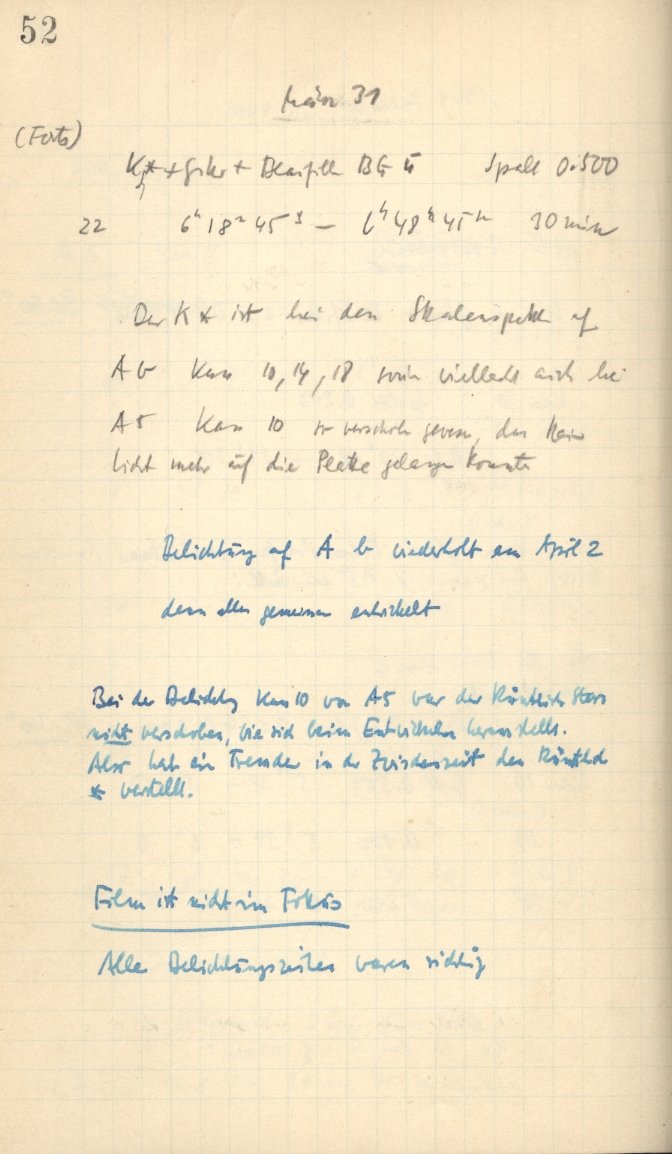 52
März 31
(Forts)
K* + + Blaufilter BG Spalt 0.500
22 6h 18m 45s — 6h 48m 45s 30 min
Der K * ist bei den Skalenspektren auf
A b Kass 10, 14, 18 sowie vielleicht auch bei
A 5 Kass 10 so verschoben gewesen, dass kein
Licht mehr auf die Platte gelangen konnte
Belichtung auf A b wiederholt am April 2
dann alles gemeinsam entwickelt
Bei der Belichtung Kass 10 von A5 war der Künstliche Stern
nicht verschoben, wie sich beim Entwickeln herausstellte.
Also hat ein Fremder in der Zwischenzeit den Künstlich
* verstellt.
Film ist nicht im Fokus
Alle Belichtungszeiten waren richtig